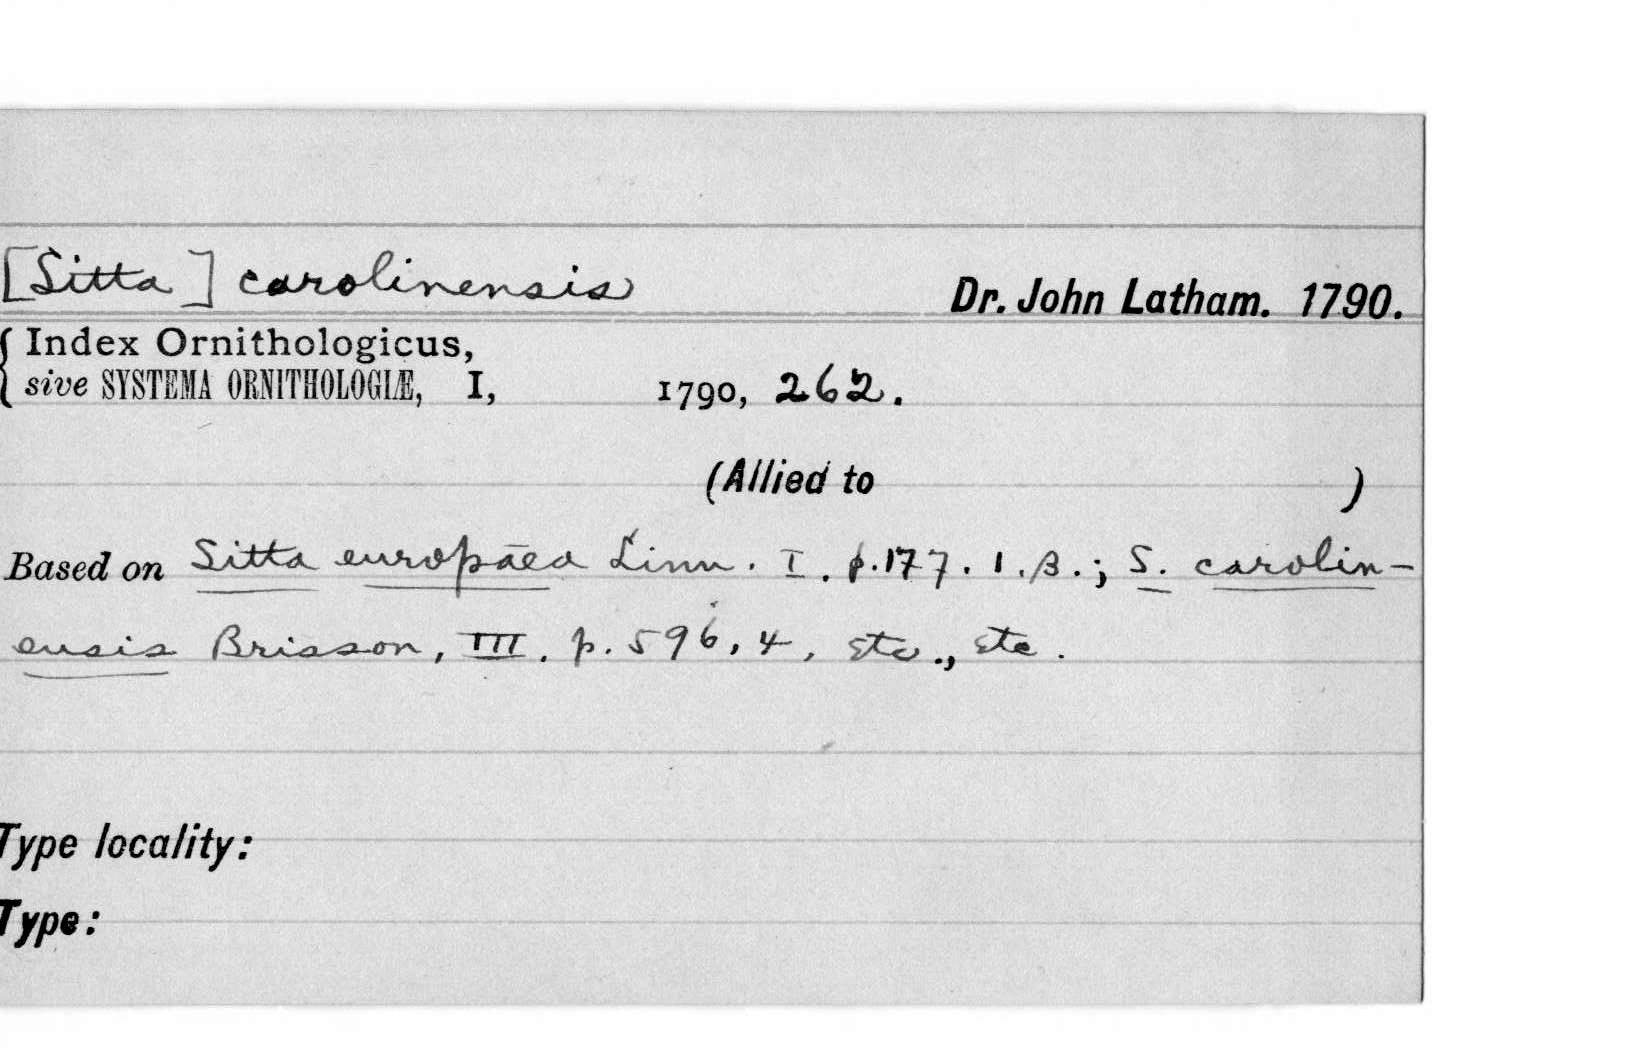 [Sitta] carolinensis Dr. John Latham. 1790.
{ Index Ornithologicus,
sive SYSTEMA ORNITHOLOGIÆ, I, 1790, 262.
(Allied to )
Based on Sitta europæa Linn. I. p.177. 1.β.; S. carolin-
ensis Brisson, III. p. 596, 4, etc., etc.
Type locality:
Type: